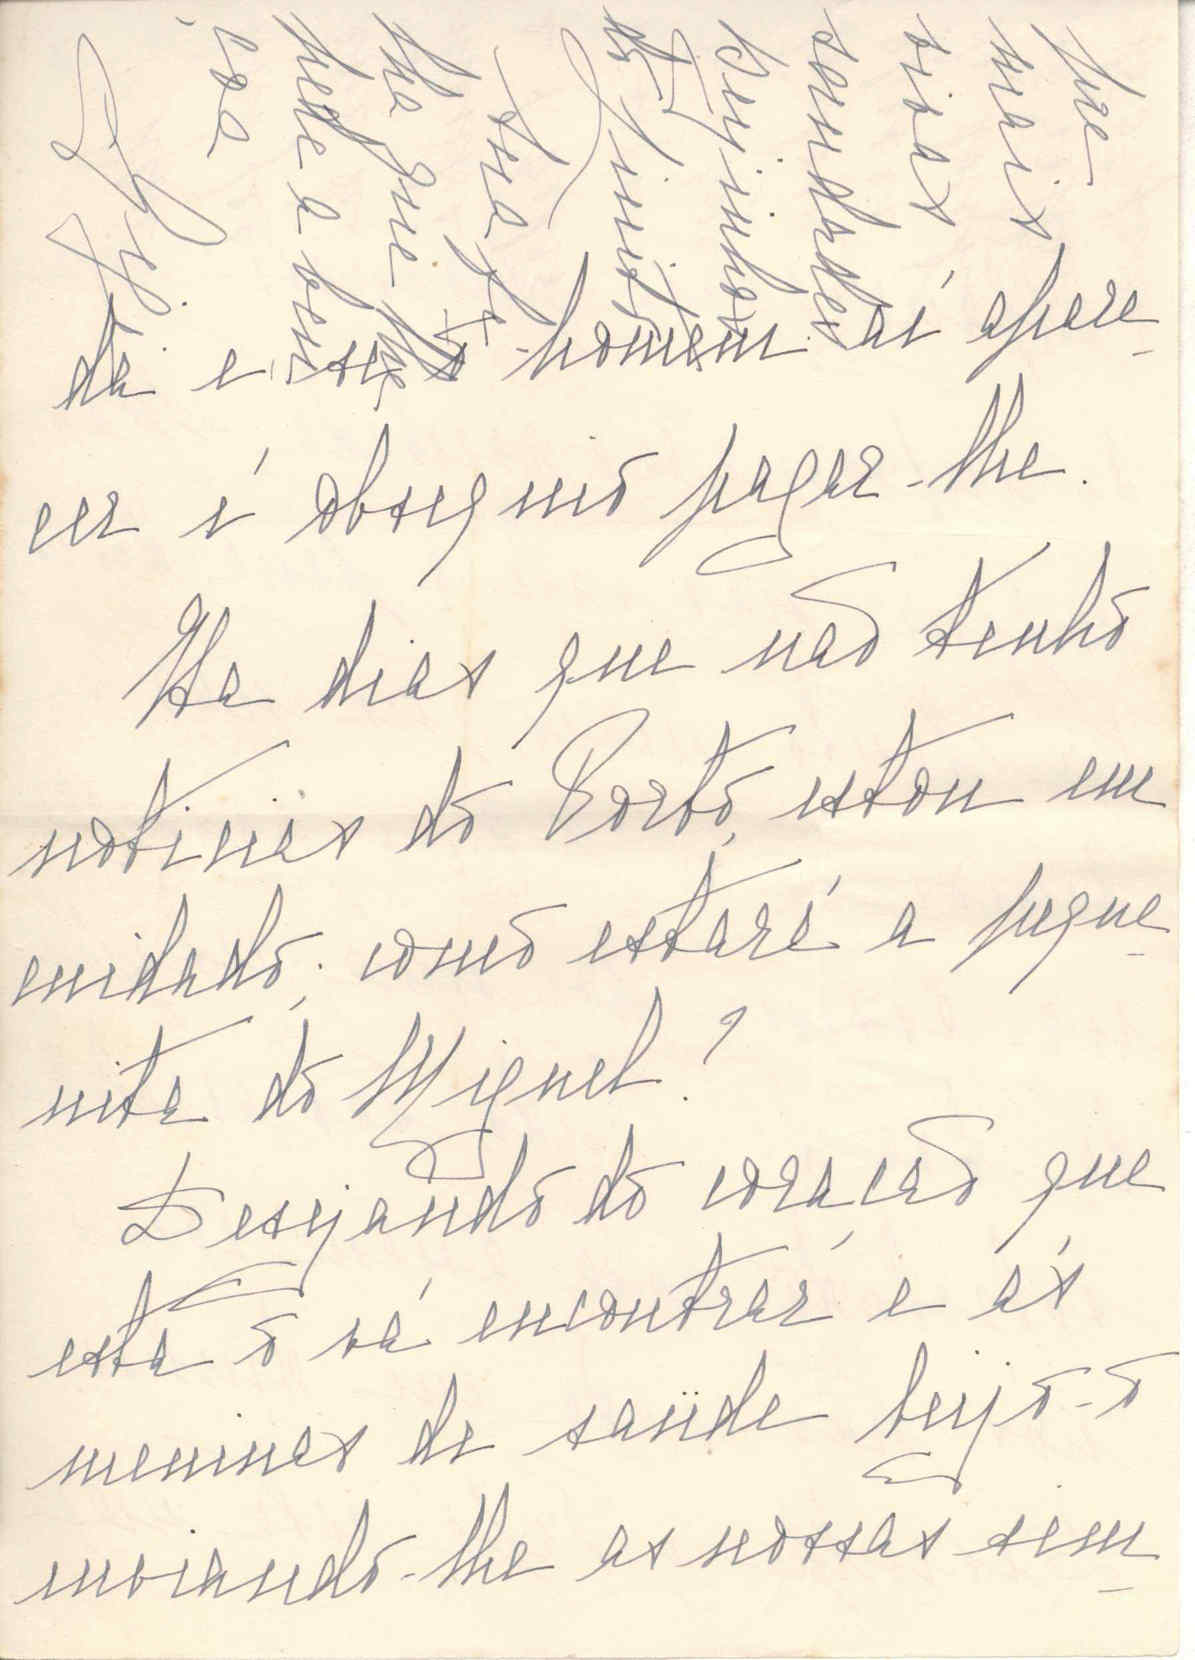 da e se o homem aí apare-
cer é obsequio pagar-lhe.
Ha dias que não tenho
noticias do Porto, estou em
cuidado; como estará a peque-
nita do Miguel?
Desejando do coração que
esta o vá encontrar e ás
meninas de saude beijo-o
enviando-lhe as nossas sem-
pre
mais
vivas
saudades
Beijinhos
do Quinito
tua
que
pede a ben
ção